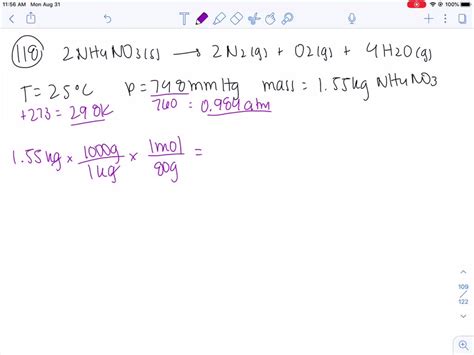 11:56 AM Mon Aug 31
100%
118) 2NH4NO3(s) → 2N2(g) + O2(g) + 4H2O(g)
T = 25°C p = 748mmHg mass = 1.55kg NH4NO3
+273 = 298K 760 = 0.984 atm
1.55kg × 1000g/1kg × 1mol/80g =
109
/
122